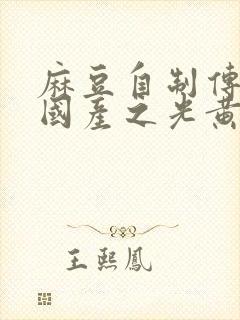 麻豆自制傳
國産之光黃
王熙鳳